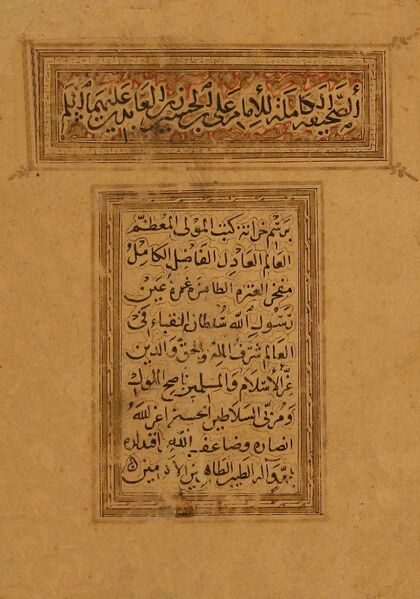 الصحيفة الكاملة للإمام علي بن الحسين زين العابدين عليهما السلم
برسم خزانة كتب المولى المعظم
العالم العادل الفاضل الكامل
مفخر العترة الطاهرة غرة عين
رسول الله سلطان النقباء في
العالم شرف الملة والحق والدين
عز الإسلام والمسلمين ناصح الملوك
ومربي السلاطين الحسنة اعز الله
انصاره وضاعف اقتداره
بمحمد وآله الطيبين الطاهرين